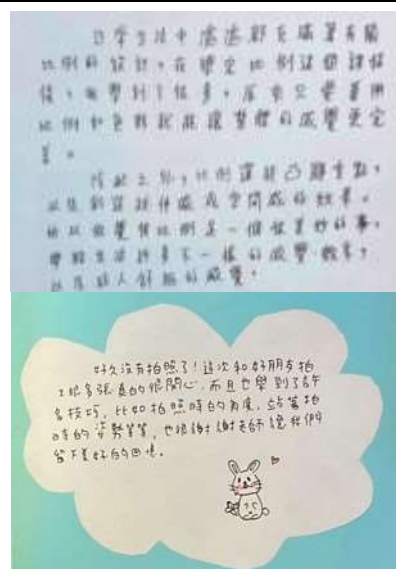 日常生活中處處都充滿著有關
比例的設計,在學完比例這個課程
後,我學到了很多,原來只要善用
比例和色彩就能讓整體的感覺更完
美。
除此之外,比例還能凸顯重點,
以及創造神秘或空間感的效果。
所以我覺得比例是一個很美妙的事,
帶給生活許多不一樣的感覺、效果,
以及給人舒服的感覺。
好久沒有拍照了!這次和好朋友拍
了很多張真的很開心,而且也學到了許
多技巧,比如拍照時的角度,站著拍
時的姿勢等等,也很謝謝老師讓我們
留下美好的回憶。